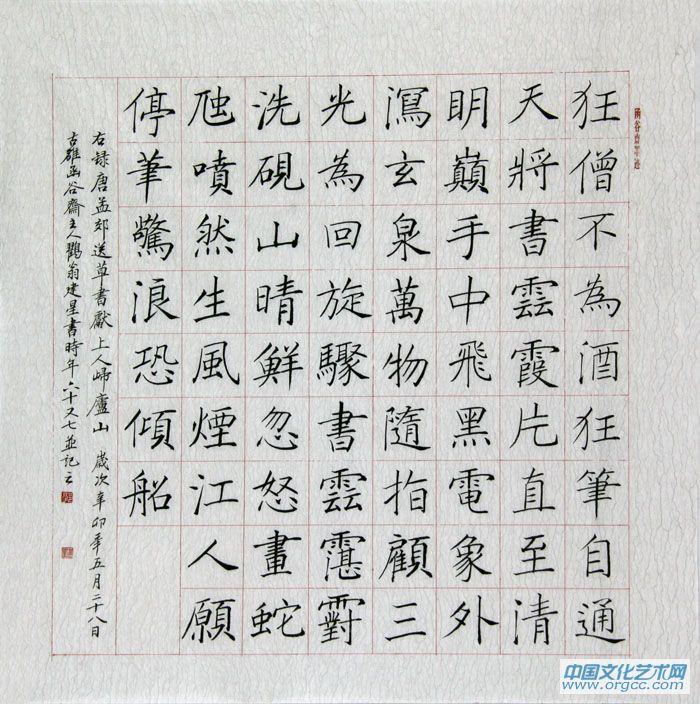 狂僧不為酒狂筆自通
天將書雲霞片直至清
明巔手中飛黑電象外
瀉玄泉萬物隨指顧三
光為回旋驟書雲霮䨴
洗硯山晴鮮忽怒畫蛇
虺噴然生風煙江人願
停筆驚浪恐傾船
右錄唐孟郊送草書獻上人歸廬山 歲次辛卯年五月二十八日
古雒函谷齋主人鸛翁建星書時年六十又七並記云
中国文化艺术网
www.orgcc.com